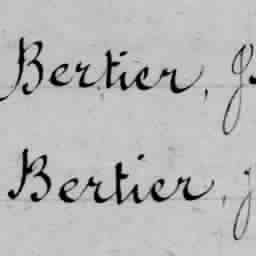 Bertier, J
Bertier, J